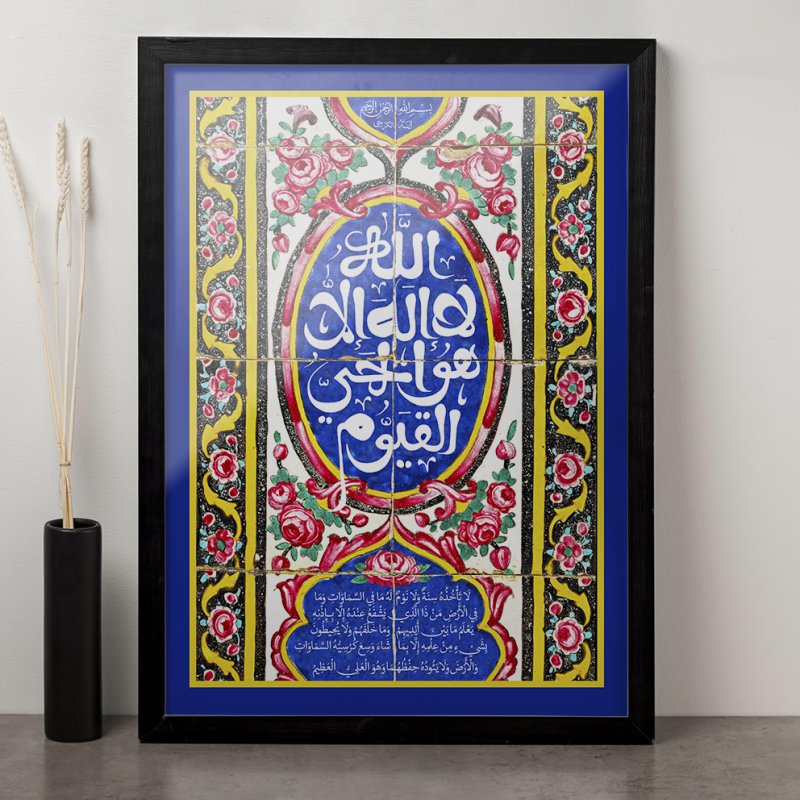 بسم الله الرحمن الرحيم
آية الكرسي
اللَّه
لا إله إلا
هو الحيّ
القيّوم
لَا تَأْخُذُهُ سِنَةٌ وَلَا نَوْمٌ لَهُ مَا فِي السَّمَاوَاتِ وَمَا
فِي الْأَرْضِ مَنْ ذَا الَّذِي يَشْفَعُ عِنْدَهُ إِلَّا بِإِذْنِهِ
يَعْلَمُ مَا بَيْنَ أَيْدِيهِمْ وَمَا خَلْفَهُمْ وَلَا يُحِيطُونَ
بِشَيْءٍ مِنْ عِلْمِهِ إِلَّا بِمَا شَاءَ وَسِعَ كُرْسِيُّهُ السَّمَاوَاتِ
وَالْأَرْضَ وَلَا يَئُودُهُ حِفْظُهُمَا وَهُوَ الْعَلِيُّ الْعَظِيمُ